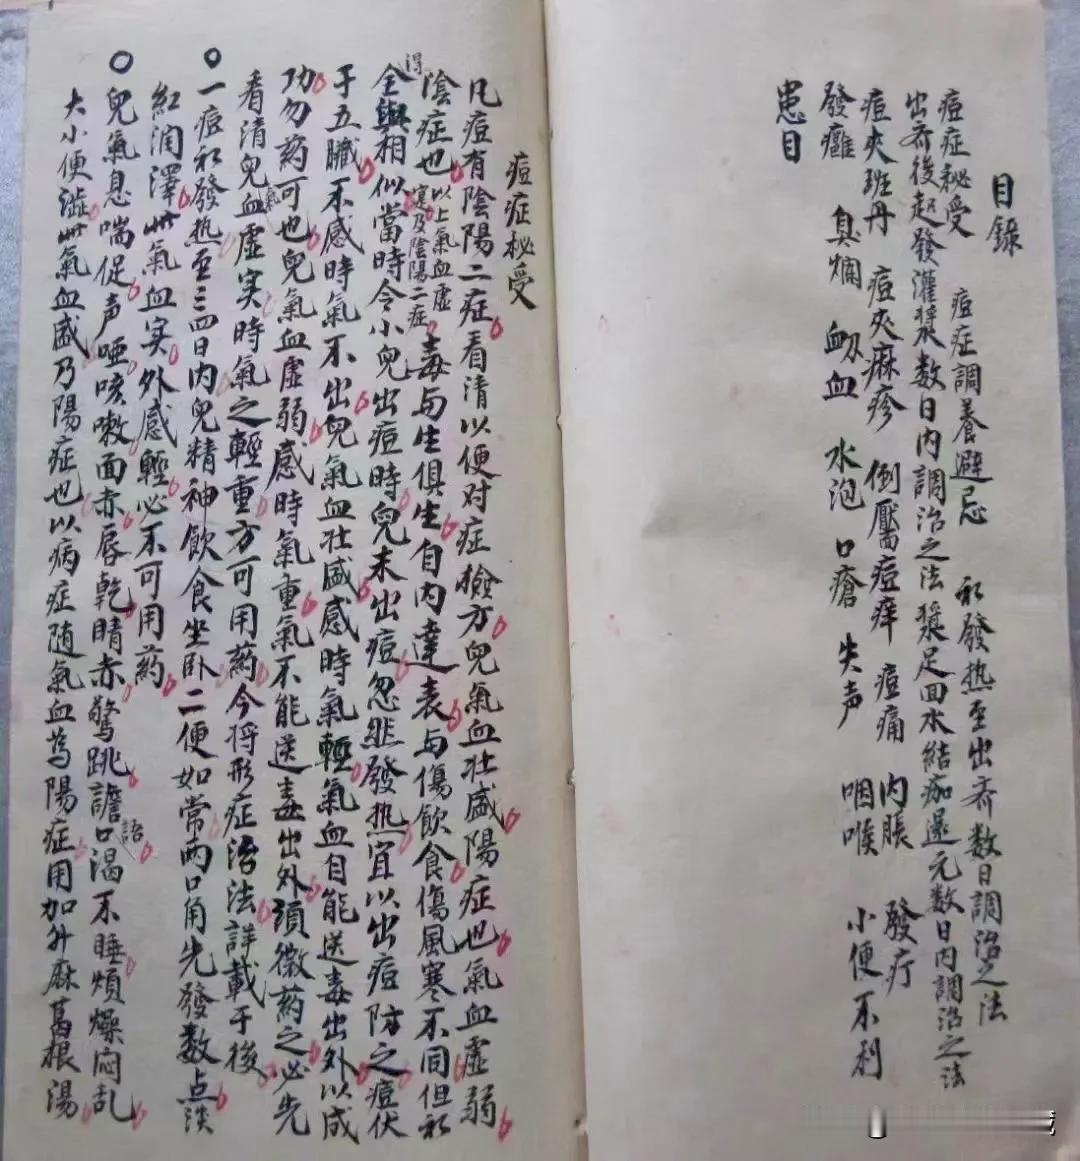 目錄
痘症秘受　痘症調養避忌　初發热至出齊数日調治之法
出齊後起發灌漿数日内調治之法　漿足回水結痂還元数日内調治之法
痘夾班丹　痘夾麻疹　倒靨痘痒　痘痛　内脹　發疔
發癰　臭爛　衂血　水泡　口瘡　失声　咽喉　小便不利
患目
痘症秘受
凡痘有陰陽二症看清以便对症檢方兒氣血壮盛陽症也氣血虚弱
陰症也以上氣血虚寔及陰陽二症毒与生俱生自内達表与傷飲食傷風寒不同但初
得全與相似當時令小兒出痘時兒未出痘忽然發热宜以出痘防之痘伏
于五臟不感時氣不出兒氣血壮盛感時氣輕氣血自能送毒出外以成
功勿药可也兒氣血虚弱感時氣重氣不能送毒出外須微药之必先
看清兒氣血虚实時氣之輕重方可用药今将形症治法詳載于後
一痘初發热至三四日内兒精神飲食坐卧二便如常两口角先發数点淡
紅润澤此氣血实外感輕必不可用药
兒氣息喘促声哑咳嗽面赤唇乾睛赤驚跳譫語口渴不睡煩燥闷乱
大小便澁此氣血盛乃陽症也以病症随氣血為陽症用加升麻葛根湯